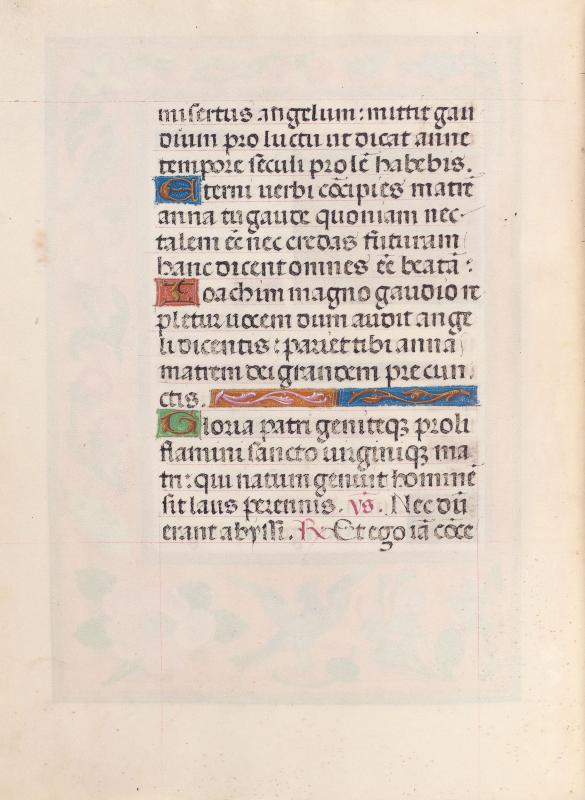 misertus angelum: mittit gau
dium pro luctu ut dicat anne
tempore seculi prolē habebis.
Eterni uerbi cōcipies matrē
anna tu gaude quoniam nec
talem eē nec credas futuram
hanc dicent omnes eē beatā:
Ioachim magno gaudio re
pletur uocem dum audit ange
li dicentis: pariet tibi anna
matrem dei grandem pre cun
ctis.
Gloria patri geniteqʒ proli
flamini sancto uirginiqʒ ma
tri: qui natum genuit hominē
sit laus perennis. vs̄. Nec dū
erant abyssi. ℟ Et ego iā cōce